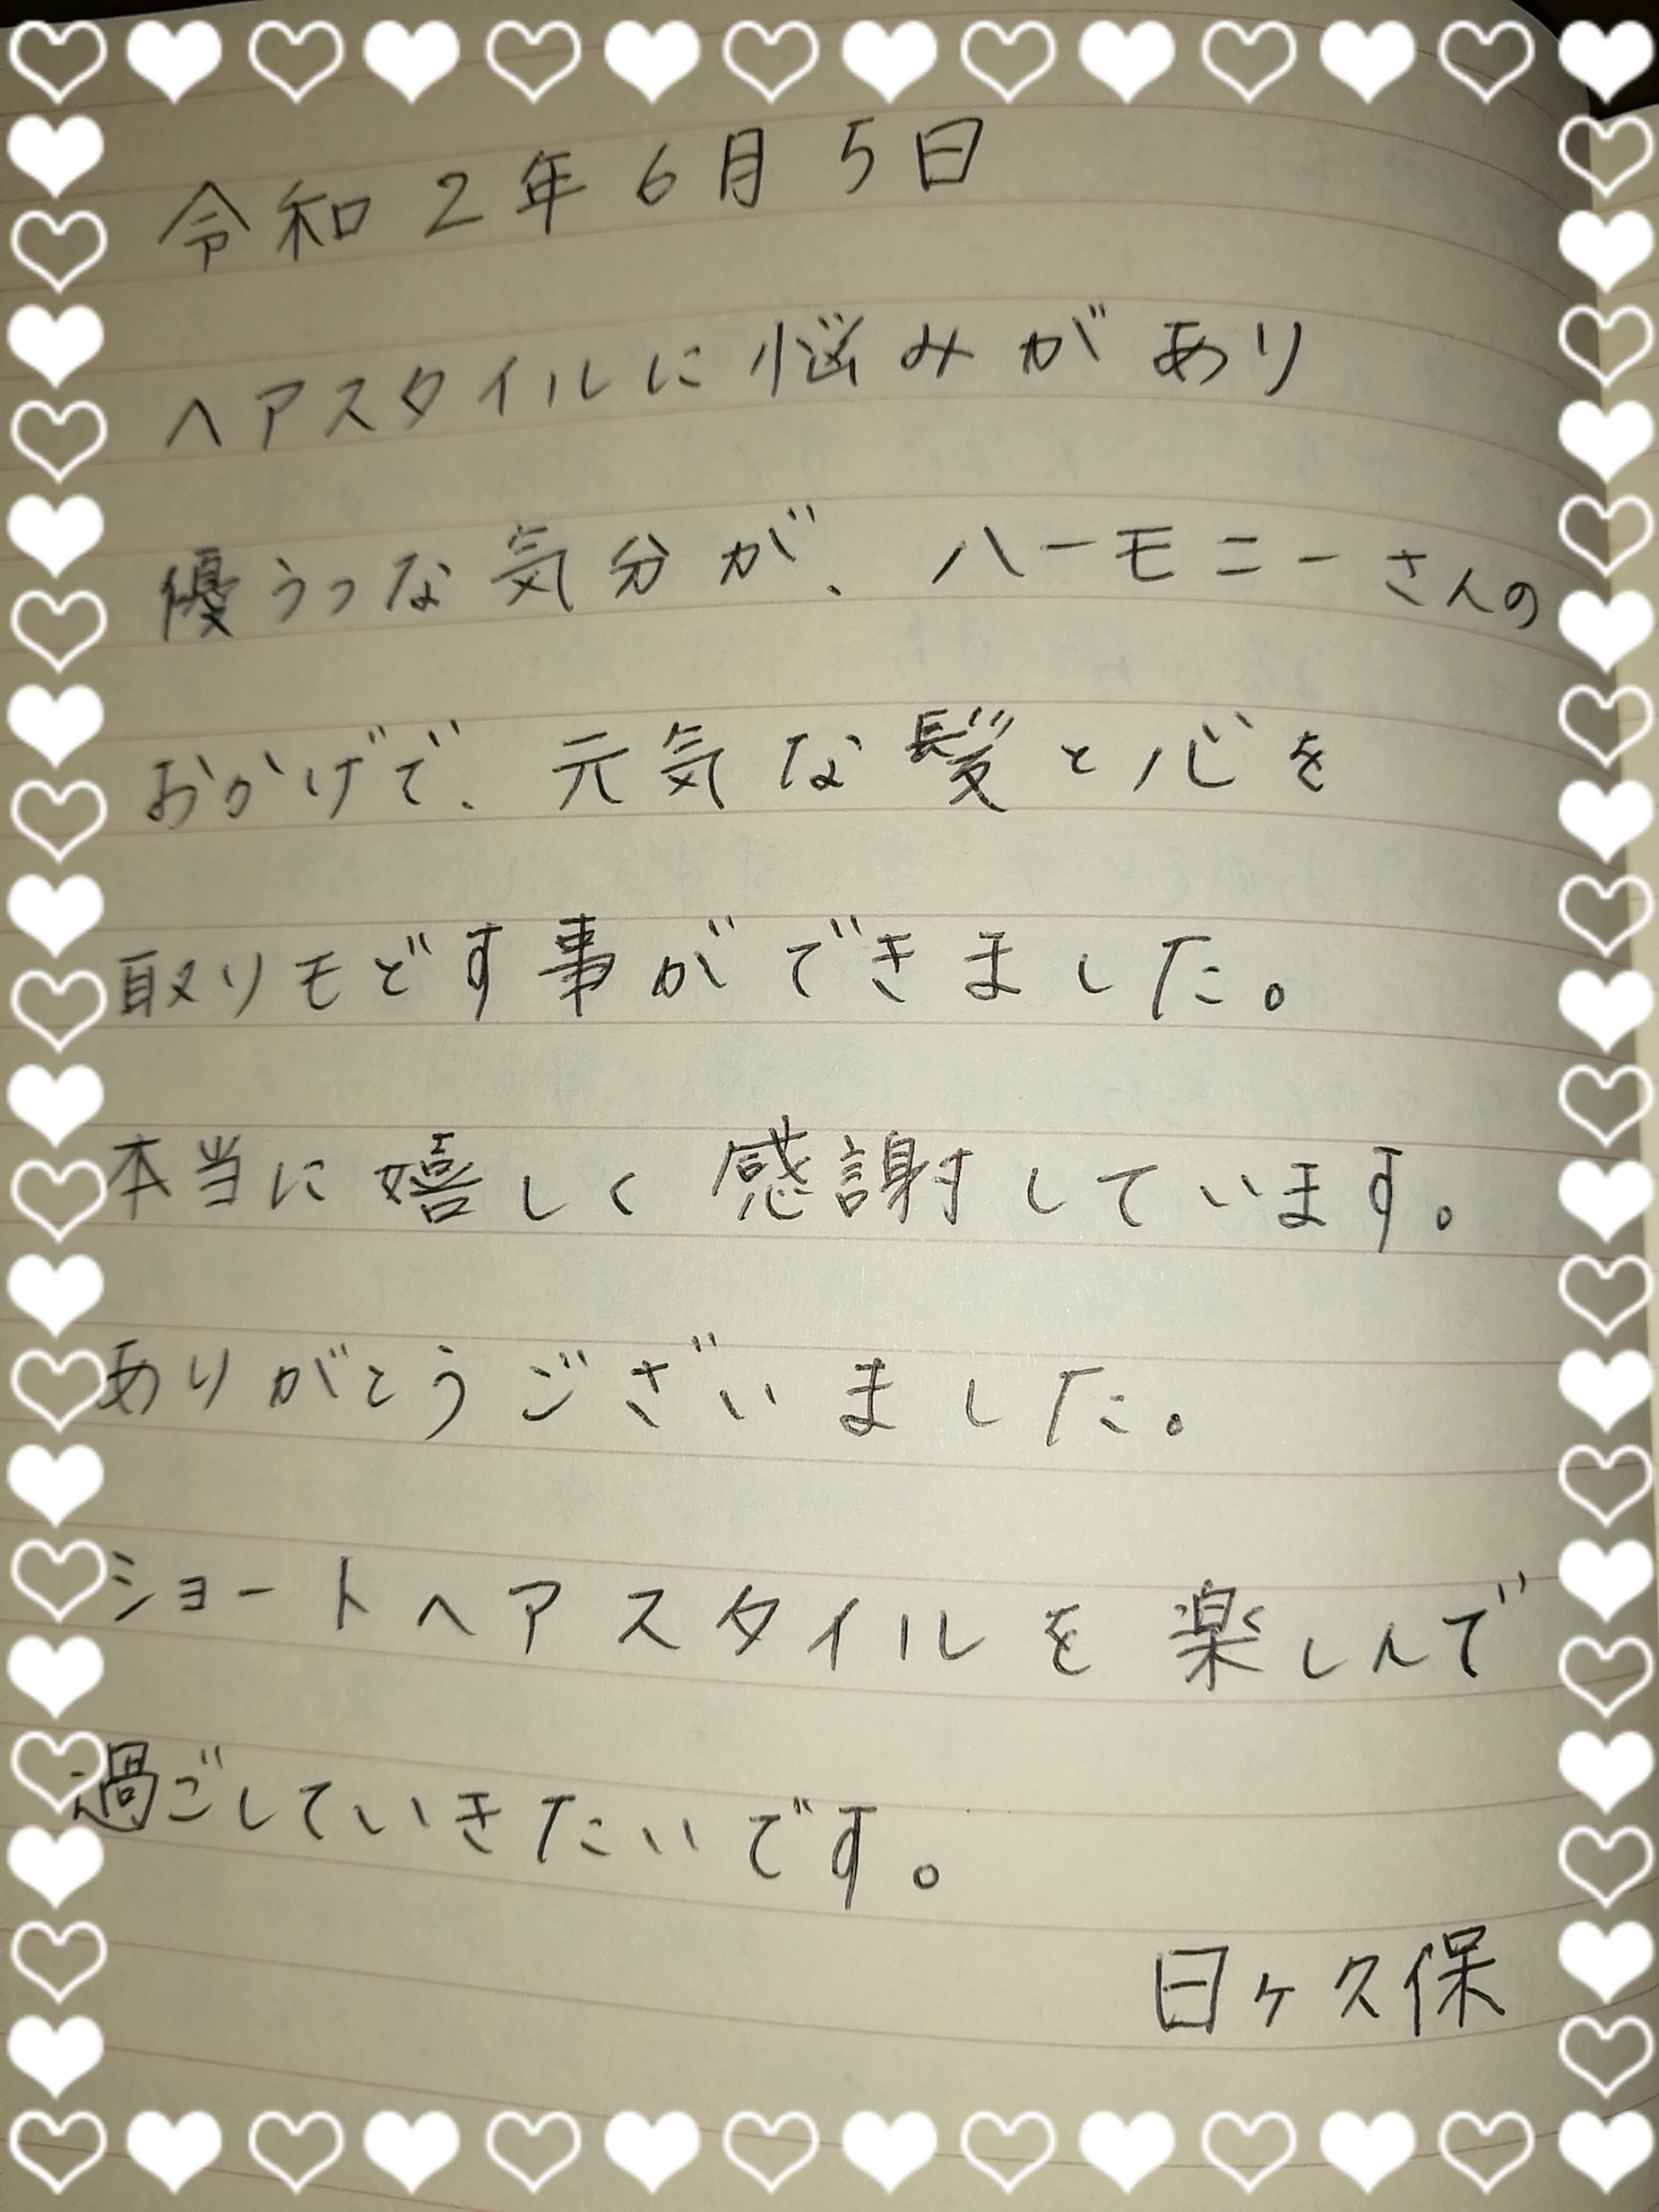 令和2年6月5日
ヘアスタイルに悩みがあり
優うつな気分が、ハーモニーさんの
おかげで、元気な髪と心を
取りもどす事ができました。
本当に嬉しく感謝しています。
ありがとうございました。
ショートヘアスタイルを楽しんで
過ごしていきたいです。
日ヶ久保